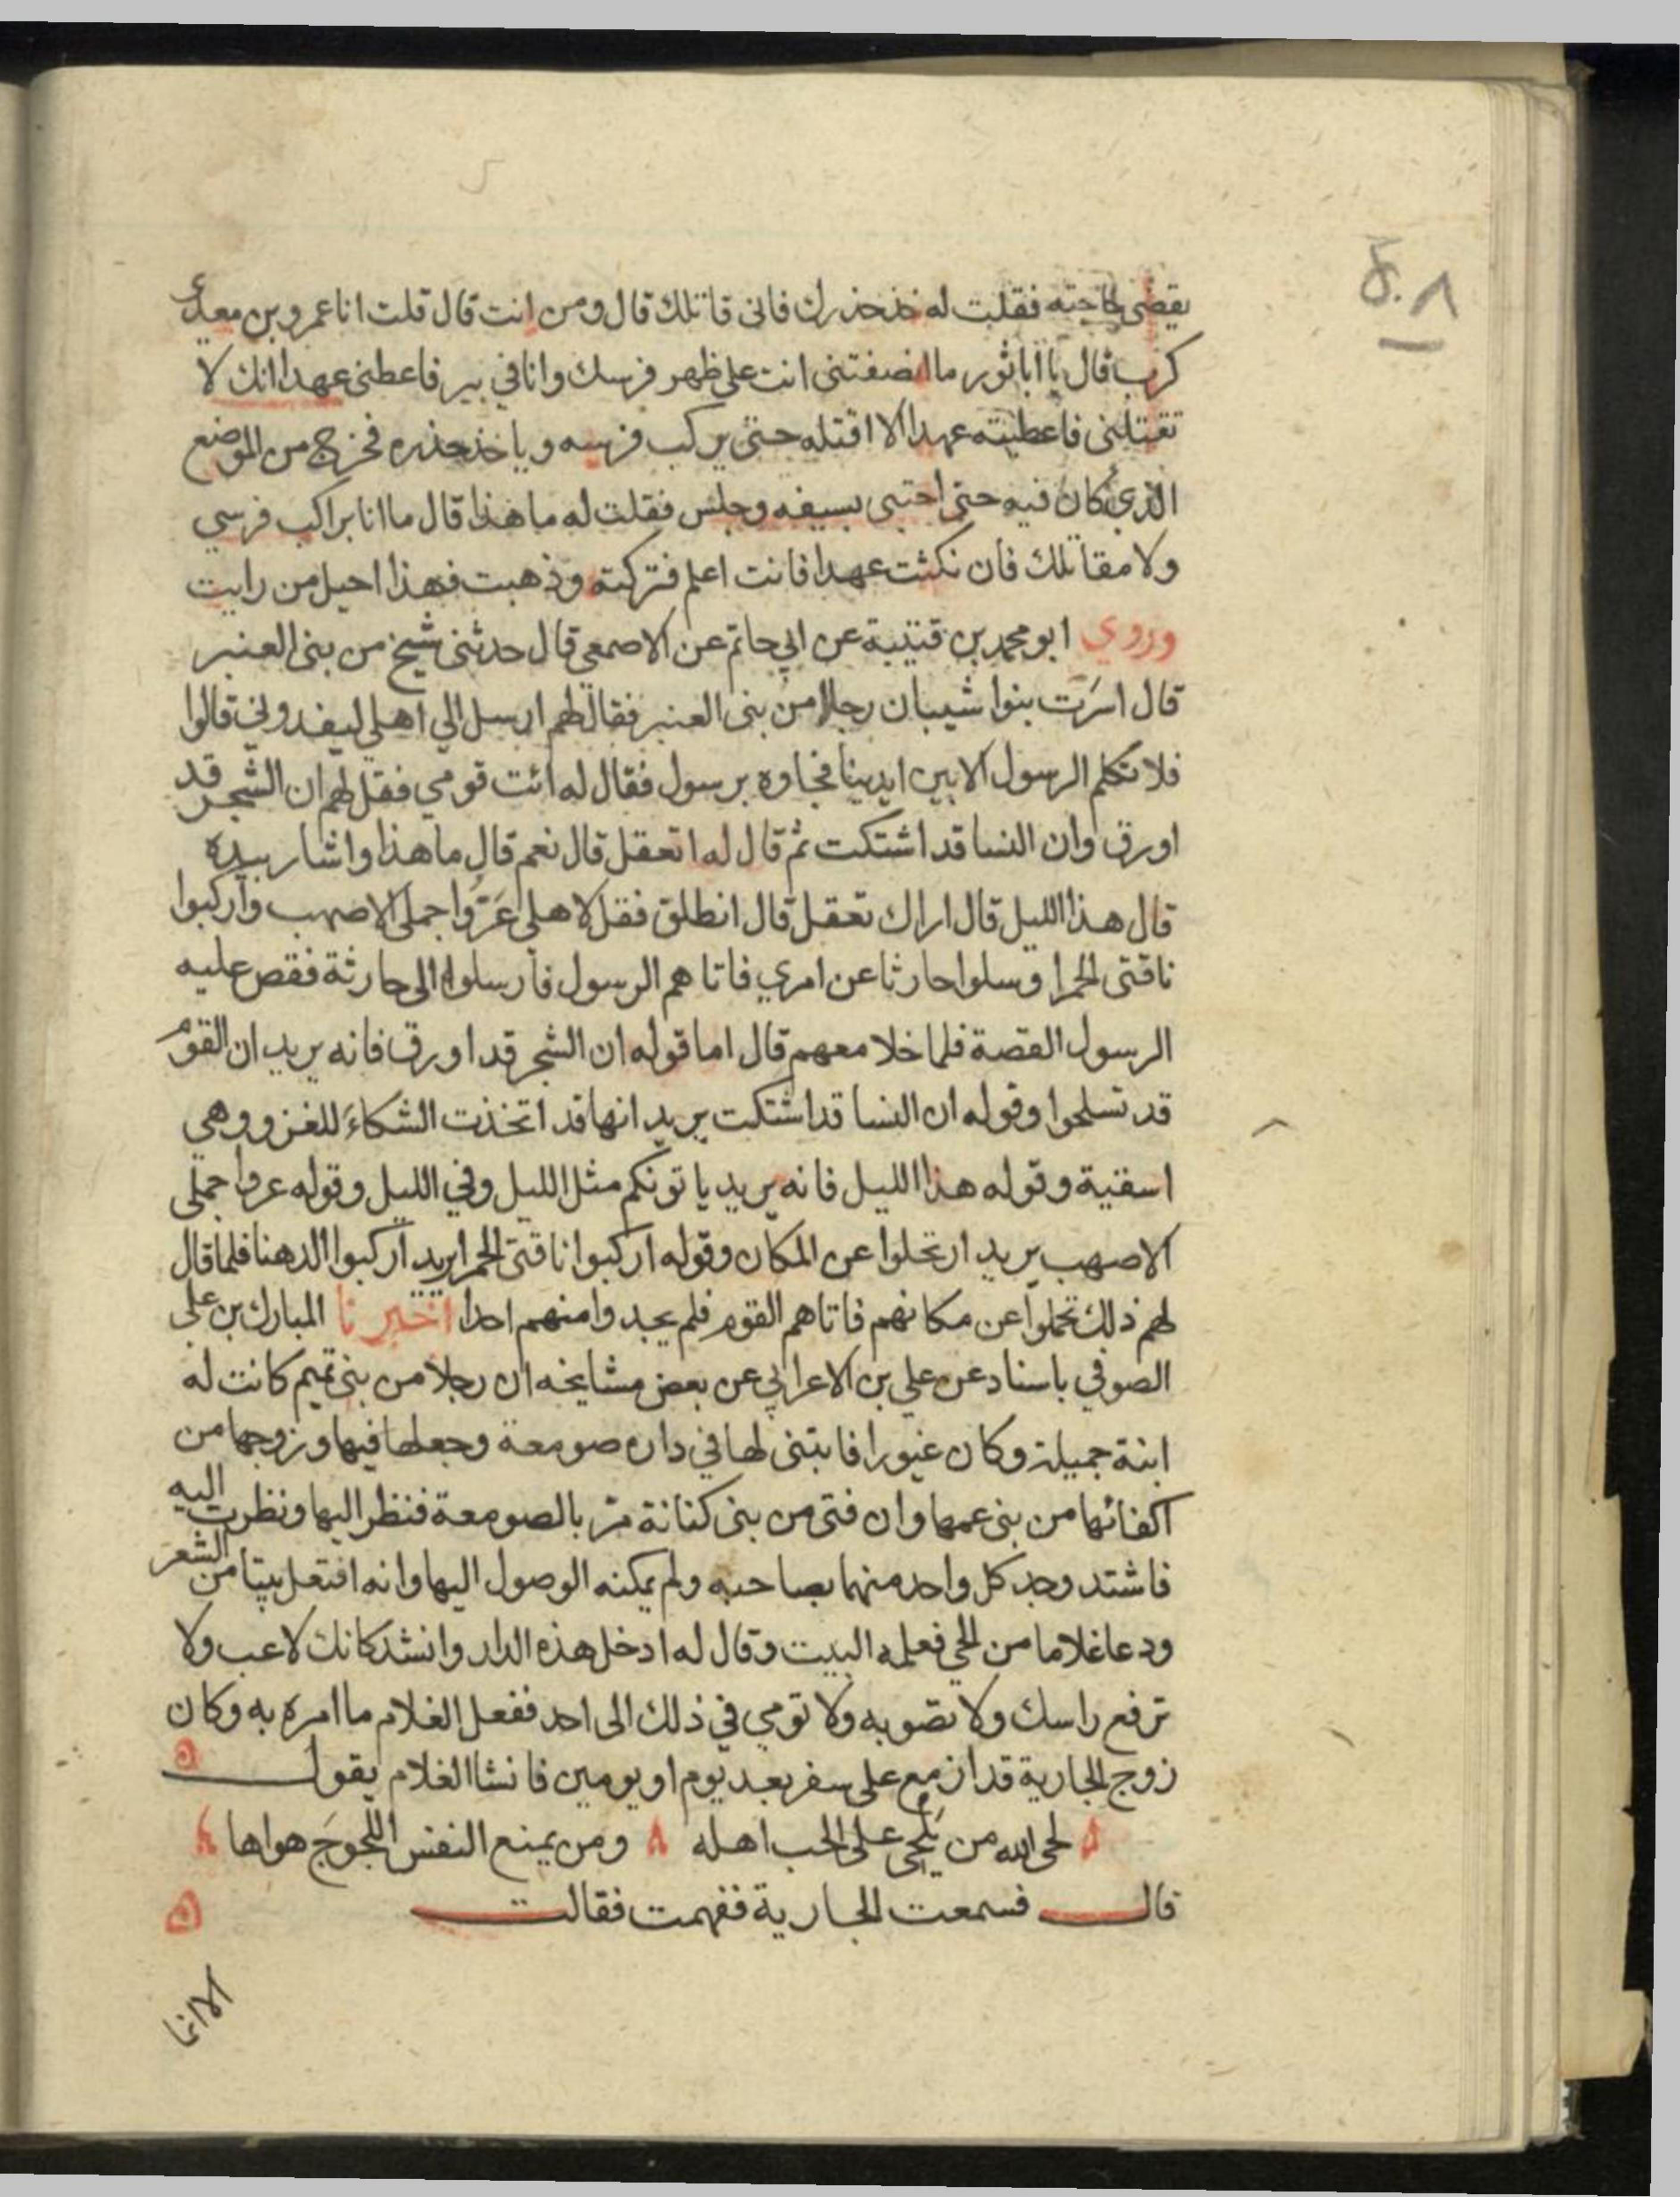 ٥٠٨
يقضى حاجته فقلت له خذ حذرك فانى قاتلك قال ومن انت قال قلت انا عمرو بن معدي
كرب قال يا اباثور ما انصفتنى انت على ظهر فرسك وانا في بير فاعطنى عهدا انك لا
تقتلنى فاعطيته عهدا الا اقتله حتى يركب فرسه وياخذ حذره فخرج من الموضع
الذي كان فيه حتى احتبى بسيفه وجلس فقلت له ما هذا قال ما انا براكب فرسي
ولا مقاتلك فان نكثت عهدا فانت اعلم فتركته وذهبت فهذا احيل من رايت
وروي ابو محمد بن قتيبة عن ابي حاتم عن الاصمعي قال حدثنى شيخ من بنى العنبر
قال اسَرَت بنوا شيبان رجلا من بنى العنبر فقال لهم ارسل الي اهلي ليفدوني قالوا
فلا تكلم الرسول الا بين ايدينا فجاوه برسول فقال له ائت قومي فقل لهم ان الشجر قد
اورق وان النسا قد اشتكت ثم قال له اتعقل قال نعم قال ما هذا واشار بيده
قال هذا الليل قال اراك تعقل قال انطلق فقل لاهلي عَرُّوا جملى الاصهب واركبوا
ناقتى الحمرا وسلوا حارثا عن امري فاتاهم الرسول فارسلوا الى حارثة فقص عليه
الرسول القصة فلما خلا معهم قال اما قوله ان الشجر قد اورق فانه يريد ان القوم
قد تسلحوا وقوله ان النسا قد اشتكت يريد انها قد اتخذت الشكاءَ للغزو وهي
اسقية وقوله هذا الليل فانه يريد ياتونكم مثل الليل وفي الليل وقوله عروا جملى
الاصهب يريد ارتحلوا عن المكان وقوله اركبوا ناقتى الحمرا يريد اركبوا الدهنا فلما قال
لهم ذلك تحملوا عن مكانهم فاتاهم القوم فلم يجدوا منهم احدا اخبرنا المبارك بن علي
الصوفي باسناد عن علي بن الاعرابي عن بعض مشايخه ان رجلا من بنى تميم كانت له
ابنة جميلة وكان غيورا فابتنى لها في داره صومعة وجعلها فيها وزوجها من
اكفائها من بنى عمها وان فتى من بنى كنانة مرّ بالصومعة فنظر اليها ونظرت اليه
فاشتد وجد كل واحد منهما بصاحبه ولم يمكنه الوصول اليها وانه افتعل بيتا من الشعر
ودعا غلاما من الحي فعلمه البيت وقال له ادخل هذه الدار وانشد كانك لاعب ولا
ترفع راسك ولا تصوبه ولا تومي في ذلك الى احد ففعل الغلام ما امره به وكان
زوج الجارية قد ازمع على سفر بعد يوم او يومين فانشا الغلام يقول
لحى الله من يَلْحى على الحب اهله ومن يمنع النفس اللجوجَ هواها
قال فسمعت الجارية ففهمت فقالت
الا انما